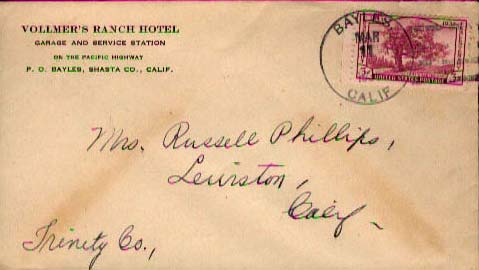 VOLLMER'S RANCH HOTEL
GARAGE AND SERVICE STATION
ON THE PACIFIC HIGHWAY
P. O. BAYLES, SHASTA CO., CALIF.
BAYLES
MAR
CALIF
UNITED STATES POSTAGE
Mrs. Russell Phillips,
Lewiston,
Calif
Trinity Co.,